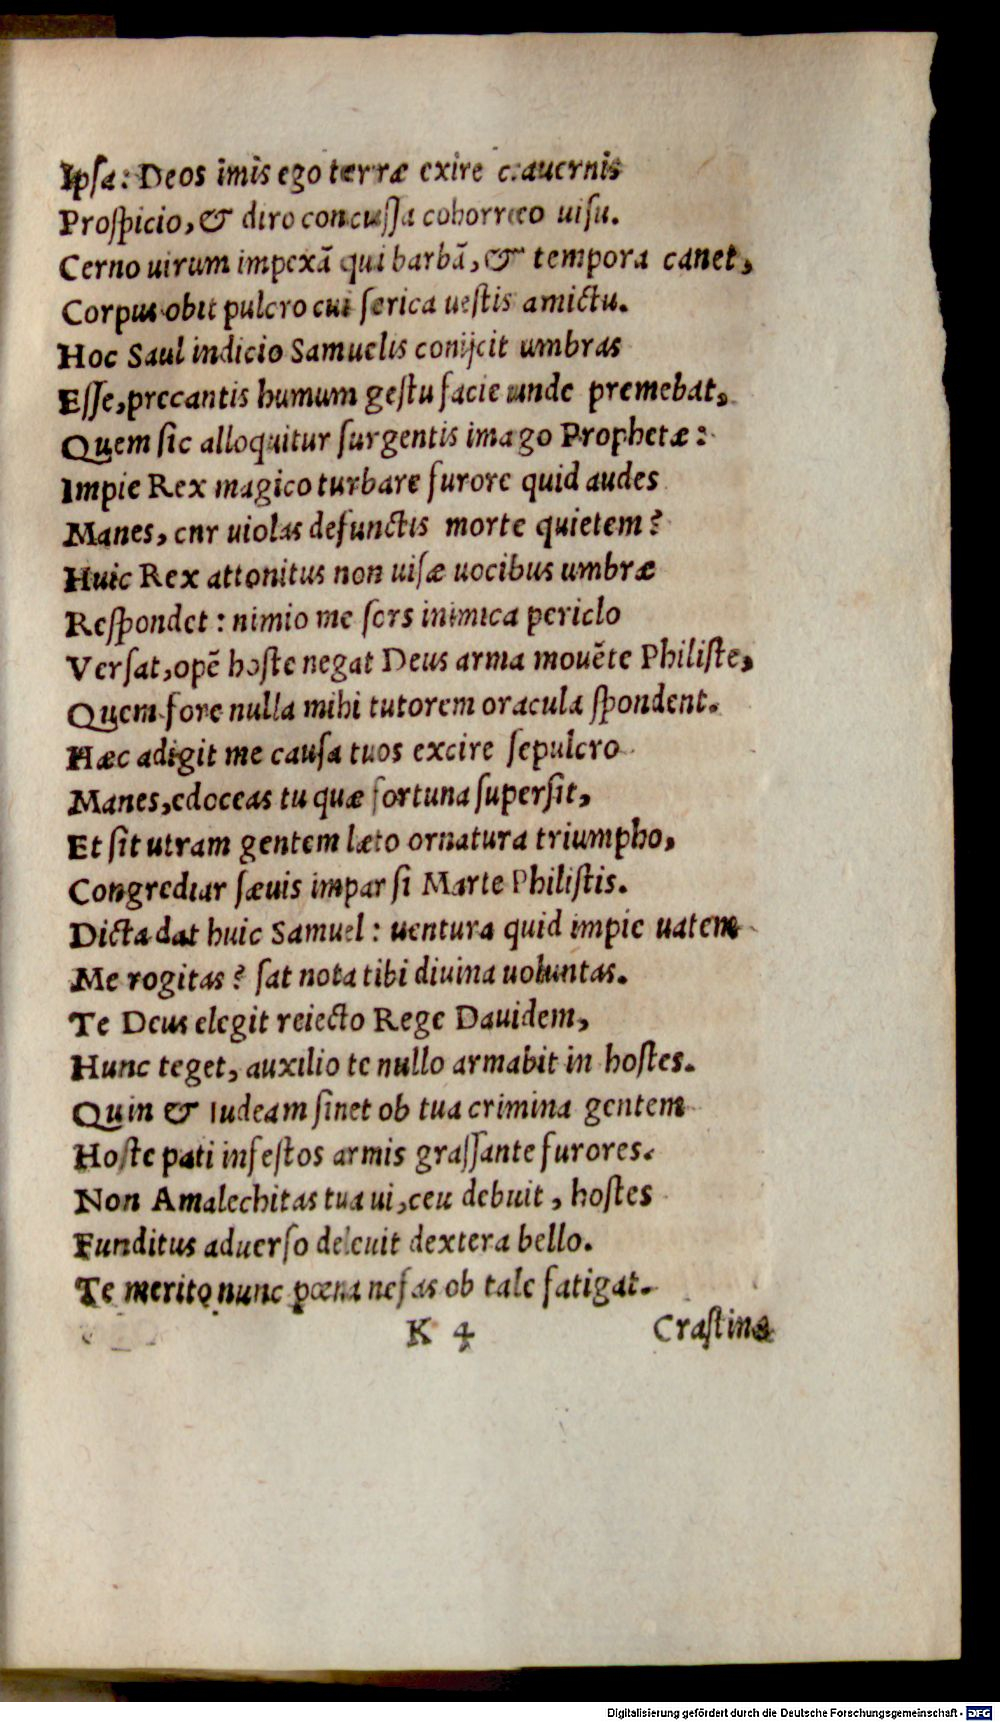 Ipsa: Deos imis ego terræ exire cauernis
Prospicio, & diro concussa cohorreo uisu.
Cerno uirum impexā qui barbā, & tempora canet,
Corpus obit pulcro cui serica uestis amictu.
Hoc Saul indicio Samuelis conijcit umbras
Esse, precantis humum gestu facie unde premebat,
Quem sic alloquitur surgentis imago Prophetæ:
Impie Rex magico turbare furore quid audes
Manes, cnr uiolas defunctis morte quietem?
Huic Rex attonitus non uisæ uocibus umbræ
Respondet: nimio me sors inimica periclo
Versat, opē hoste negat Deus arma mouēte Philiste,
Quem fore nulla mihi tutorem oracula spondent.
Hæc adigit me causa tuos excire sepulcro
Manes, edoceas tu quæ fortuna supersit,
Et sit utram gentem læto ornatura triumpho,
Congrediar sæuis impar si Marte Philistis.
Dicta dat huic Samuel: uentura quid impie uatem
Me rogitas? sat nota tibi diuina uoluntas.
Te Deus elegit reiecto Rege Dauidem,
Hunc teget, auxilio te nullo armabit in hostes.
Quin & Iudeam sinet ob tua crimina gentem
Hoste pati infestos armis grassante furores.
Non Amalechitas tua ui, ceu debuit, hostes
Funditus aduerso deleuit dextera bello.
Te merito nunc pœna nefas ob tale fatigat.
K 4 Crastina
Digitalisierung gefördert durch die Deutsche Forschungsgemeinschaft - DFG